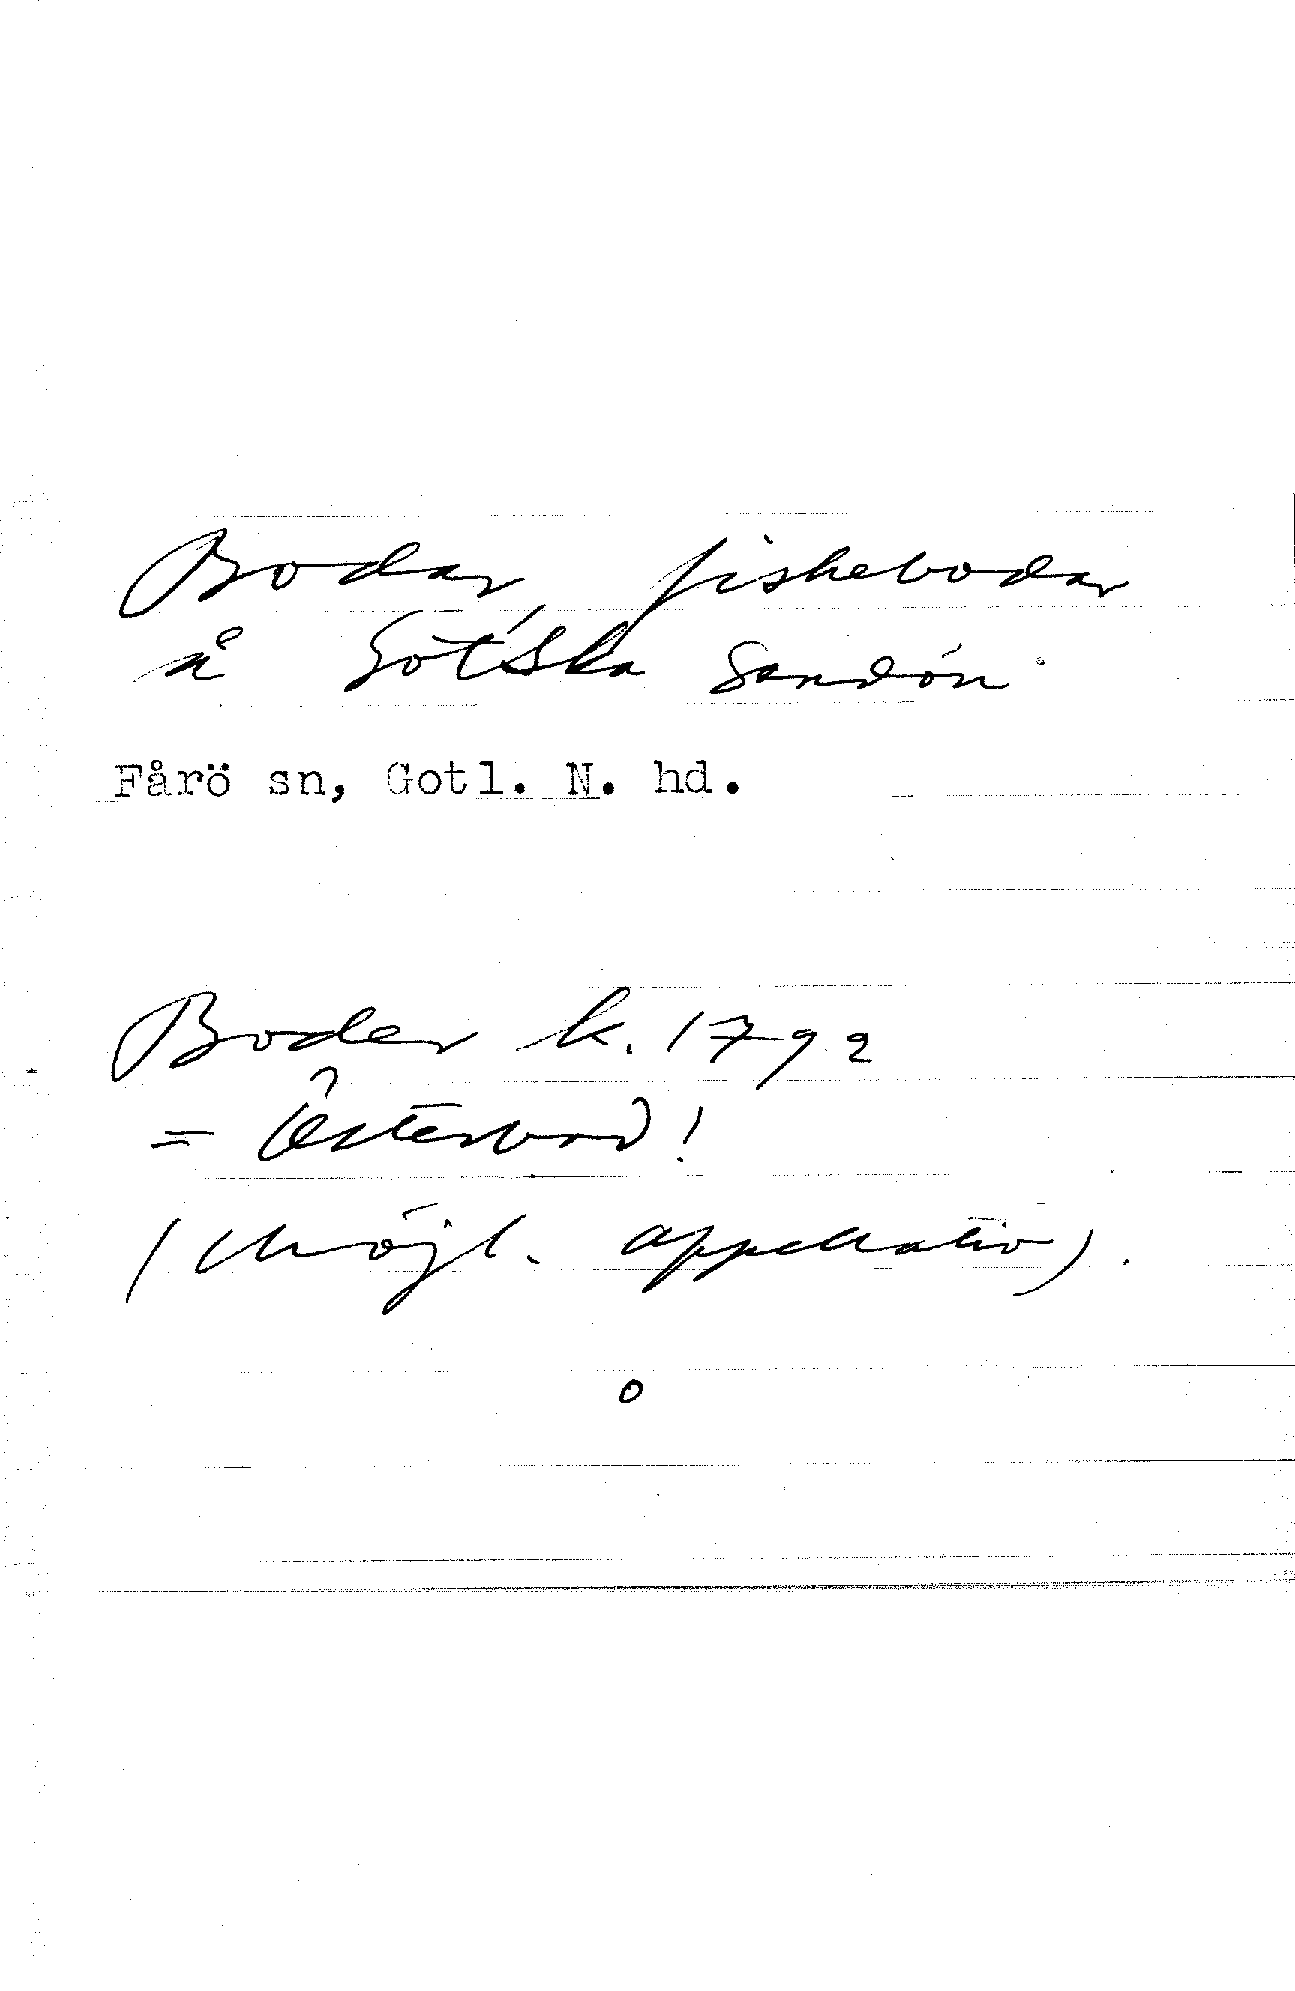 Bodar, fiskebodar
å Gotska Sandön
Fårö sn, Gotl. N. hd.
Boder k. 1792
= Österbod!
(Möjl. appellativ).